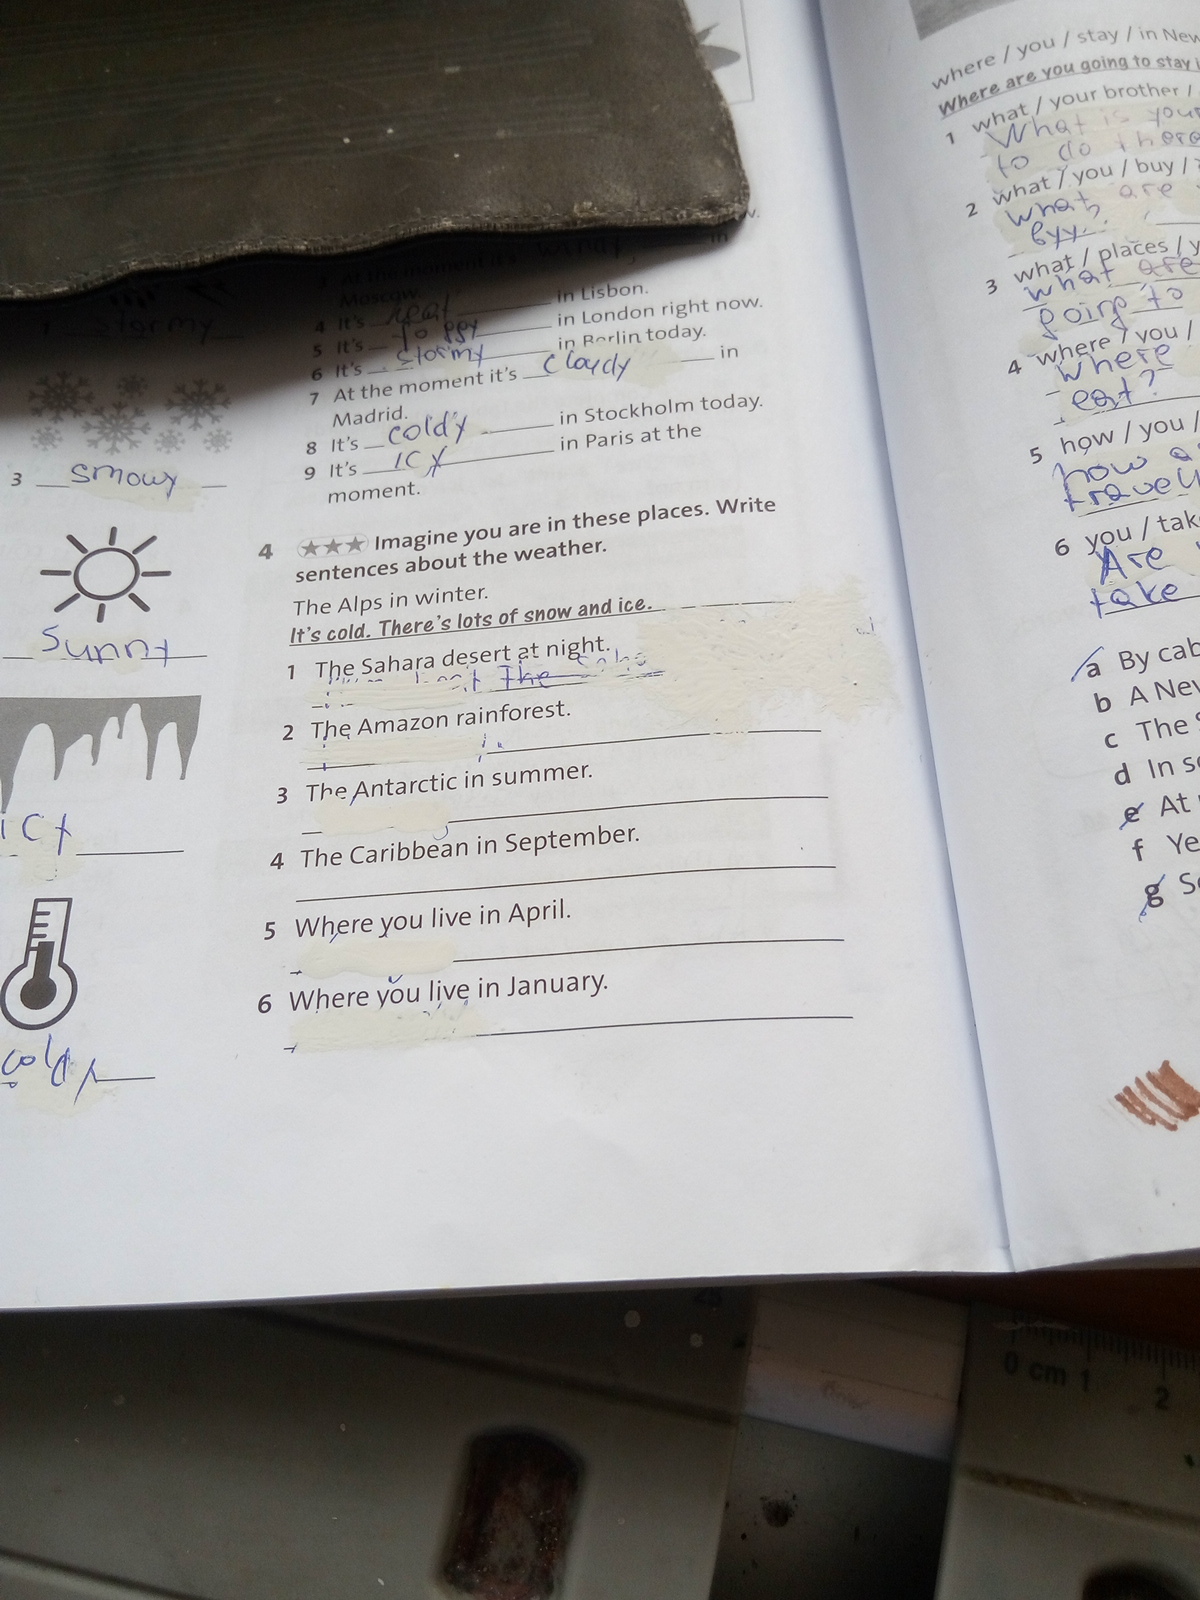 1 stormy
3 smowy
Sunny
ICY
coldy
Moscow.
4 It's heat in Lisbon.
5 It's foggy in London right now.
6 It's stormy in Berlin today.
7 At the moment it's cloudy in
Madrid.
8 It's coldy in Stockholm today.
9 It's ICY in Paris at the
moment.
4 ★★★ Imagine you are in these places. Write
sentences about the weather.
The Alps in winter.
It's cold. There's lots of snow and ice.
1 The Sahara desert at night.
The
2 The Amazon rainforest.
3 The Antarctic in summer.
4 The Caribbean in September.
5 Where you live in April.
6 Where you live in January.
where / you / stay / in New
Where are you going to stay i
1 what / your brother /
What is your
to do there
2 what / you / buy /
what are
byy?
3 what / places / y
what are
going to
4 where / you /
where
eat?
5 how / you /
how a
travell
6 you / take
Are
take
a By cab
b A New
c The
d In so
e At
f Ye
g So
0 cm 1 2